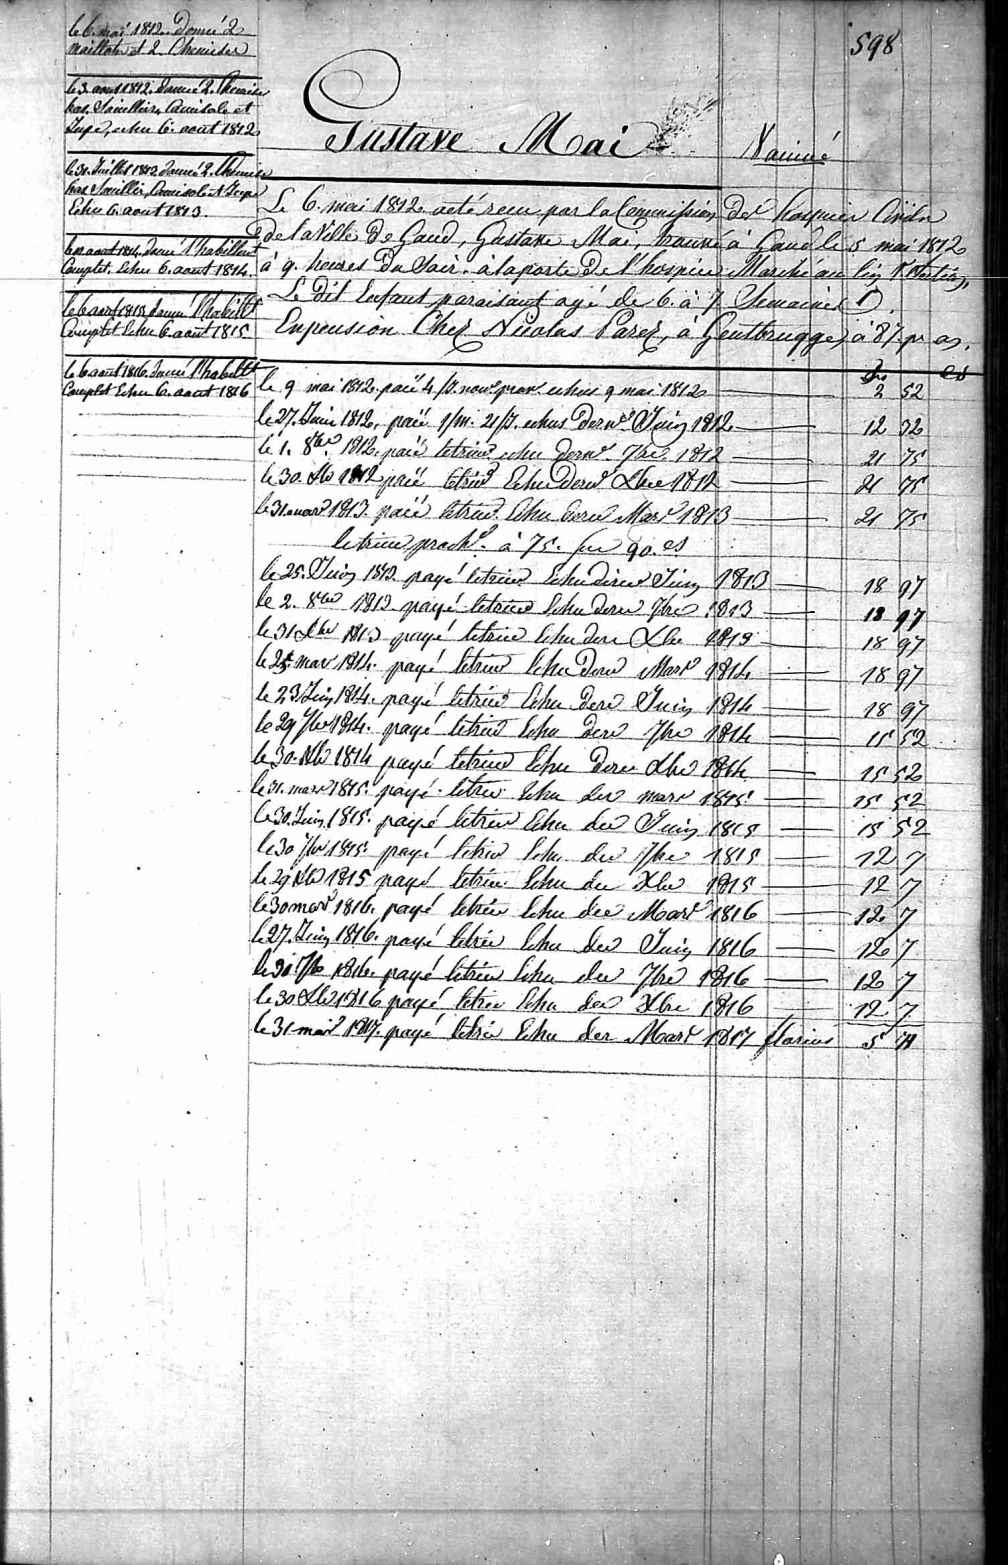 598
le 6. mai 1812. donné 2
maillots et 2 Chemises
le 3. aout 1812. donné 2. Chemise
bas, Camisole et
Jupe, echu 6. aout 1812
le 31. Juillet 1813 donné 2. Chemise
bas Camisole et Jupe
Echu 6. aout 1813.
aout 1814. donné l'habillemt
Complet. Echu 6. aout 1814.
le 6 aout 1815 donné l'habillt
Complet Echu 6. aout 1815
le 6 aout 1816. donné l'habillt
Complet Echu 6. aout 1816
Gustave Mai
Vacciné
Le 6. mai 1812. a été recu par la Commission des hospices Civils
de la Ville de Gand, Gustave Mai, trouvé à Gand le 5 mai 1812
à 9. heures du Soir. à la porte de l'hospice Marché au
Le dit Enfant paraisant agé de 6. à 7 Semaines
En pension Chez Nicolas Parez, à Gentbrugge, à 87 pr an.
le 9 mai 1812. paié 4 echus 9 mai 1812 2 52
le 27. Juin 1812. paié 1/m. 21/J. echus dernr Juin 1812 12 32
le 1. 8bre. 1812. paié letrim. echu dernr. 7bre. 1812 21 75
le 30. Xb 1812 paié letrim Echu dernr Xbre 1812 21 75
le 31 mars 1813. paié letrim. Echu dern Mars 1813 21 75
letrim proch. à 75. fr 90. cs
le 25. Juin 1813. payé letrim Echu dern Juin 1813 18 97
le 2. 8bre 1813 payé letrim Echu dern 7bre 1813 18 97
le 31 Xbre 1813 payé letrim Echu dern Xbre 1813 18 97
le 25 mars 1814. payé letrim Echu dern Mars 1814 18 97
le 23 Juin 1814. payé letrim Echu dern Juin 1814 18 97
le 29 7bre 1814. payé letrim Echu dern 7bre 1814 15 52
le 30. Xb 1814 payé letrim Echu dern Xbre 1814 15 52
le 31. mars 1815. payé letrim Echu der mars 1815 15 52
le 30. Juin 1815. payé letrim Echu der Juin 1815 15 52
le 30 7br 1815. payé letrim Echu der 7bre 1815 12 7
le 29 Xb 1815 payé letrim Echu der Xbre 1815 12 7
le 30 mars 1816. payé letrim Echu der Mars 1816 12 7
le 27. Juin 1816. payé letrim Echu der Juin 1816 12 7
le 30 7b 1816. payé letrim Echu der 7bre 1816 12 7
le 30 Xb 1816 payé letrim Echu der Xbre 1816 12 7
le 31 mars 1817. payé letrim Echu der Mars 1817 florins 5 71